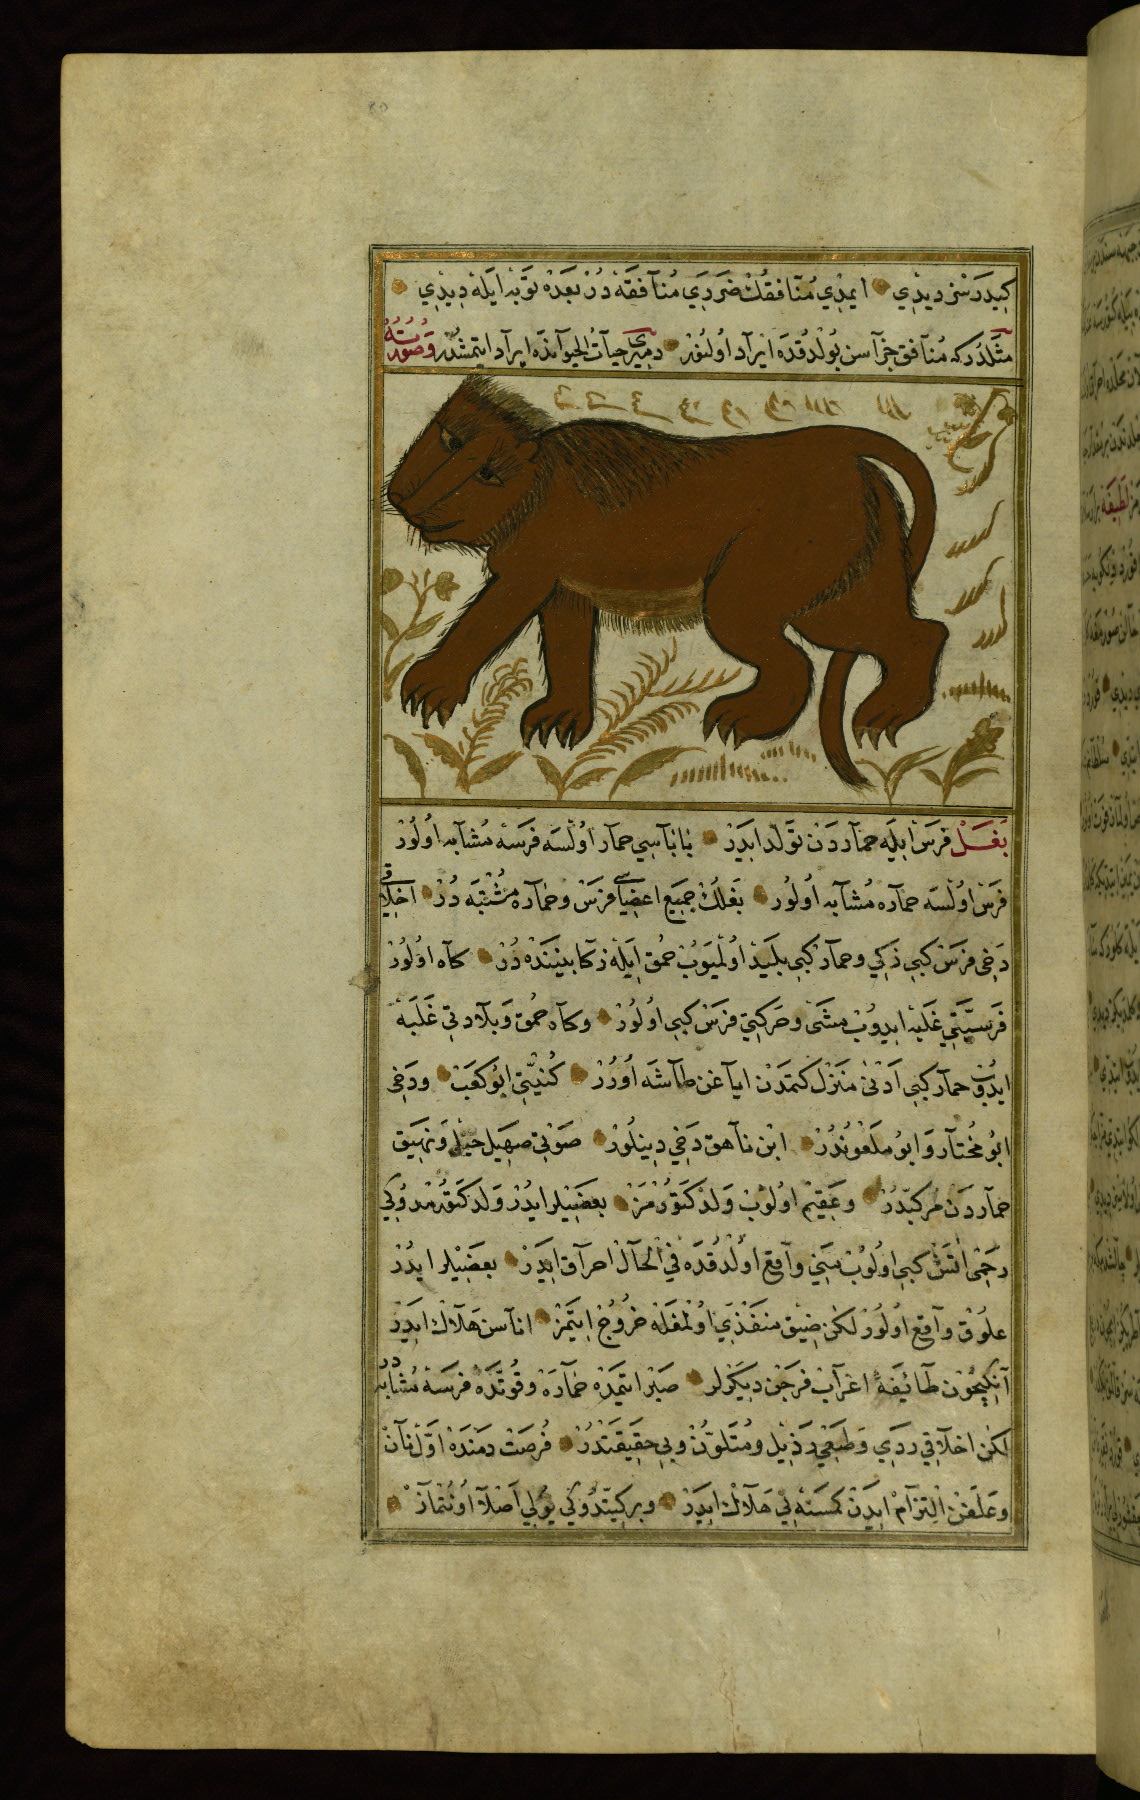 كيدرسن ديدي ايمدي منافقك ضرري منافقه در بعده توبه ايله ديدي
مثلدر كه منافق جزآسن بولدقده ايراد اولنور دميرى حيات الحيوانده ايراد ايتمشدر وصورته
بغل فرس ايله حماردن تولد ايدر باباسي حمار اولسه فرسه مشابه اولور
فرس اولسه حماره مشابه اولور بغلك جميع اعضاسي فرس وحماره مشتبه در اخلاقى
دخى فرس كبي ذكي وحمار كبي بليد اولميوب حمق ايله ذكا بيننده در كاه اولور
فرسيتي غلبه ايدوب مشى وحركتي فرس كبي اولور وكاه حمق وبلادتي غلبه
ايدوب حمار كبي ادنى منزل كتمدن اياغن طاشه اورر كنيتي ابو كعب ودخى
ابو مختار وابو ملعوندر ابن ناهق دخي دينلور صوتي صهيل خيل ونهيق
حماردن مركبدر وعقيم اولوب ولد كتورمز بعضيلر ايدر ولد كتورمدوكي
رحمى آتش كبي اولوب مني واقع اولدقده في الحال احراق ايدر بعضيلر ايدر
علوق واقع اولور لكن ضيق منفذي اولمغله خروج ايتمز اناسن هلاك ايدر
آنكيچون طائفه اعراب فرجن ديكرلر صبر ايتمده حماره وقوتده فرسه مشابه در
لكن اخلاقي ردي وطبعي رذيل ومتلون وبى حقيقتدر فرصت دمنده اول نان
وعلفن التزام ايدن كمسنه يي هلاك ايدر وبر كيتدوكي يولي اصلا اونتماز